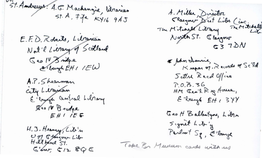 St. Andrews: A.G. Mackenzie, Librarian
St. A., Fife KY16 9AJ
E.F.D. Roberts, Librarian
Nat'l Library of Scotland
Geo IV Bridge
E'burgh EH1 1EW
A.P. Shearman
City Librarian
E'burgh Central Library
Geo IV Bridge
EH1 1EG
H.J. Heaney Lib'n
U of Glasgow Lib
Hillhead St.
G'gow, G12 8QE
A. Miller, Director
Glasgow Dist Libs
The Mitchell Library
North St. Glasgow
G3 7DN
Keeper of Records of Scotld
Scottish Record Office
P.O.B. 36
HM Gen'l Reg House,
E'burgh EH1 3YY
Geo H Ballantyne, Lib'n
Signet Lib'y
Parl't Sq., E'burgh
Take for Museum cards with us